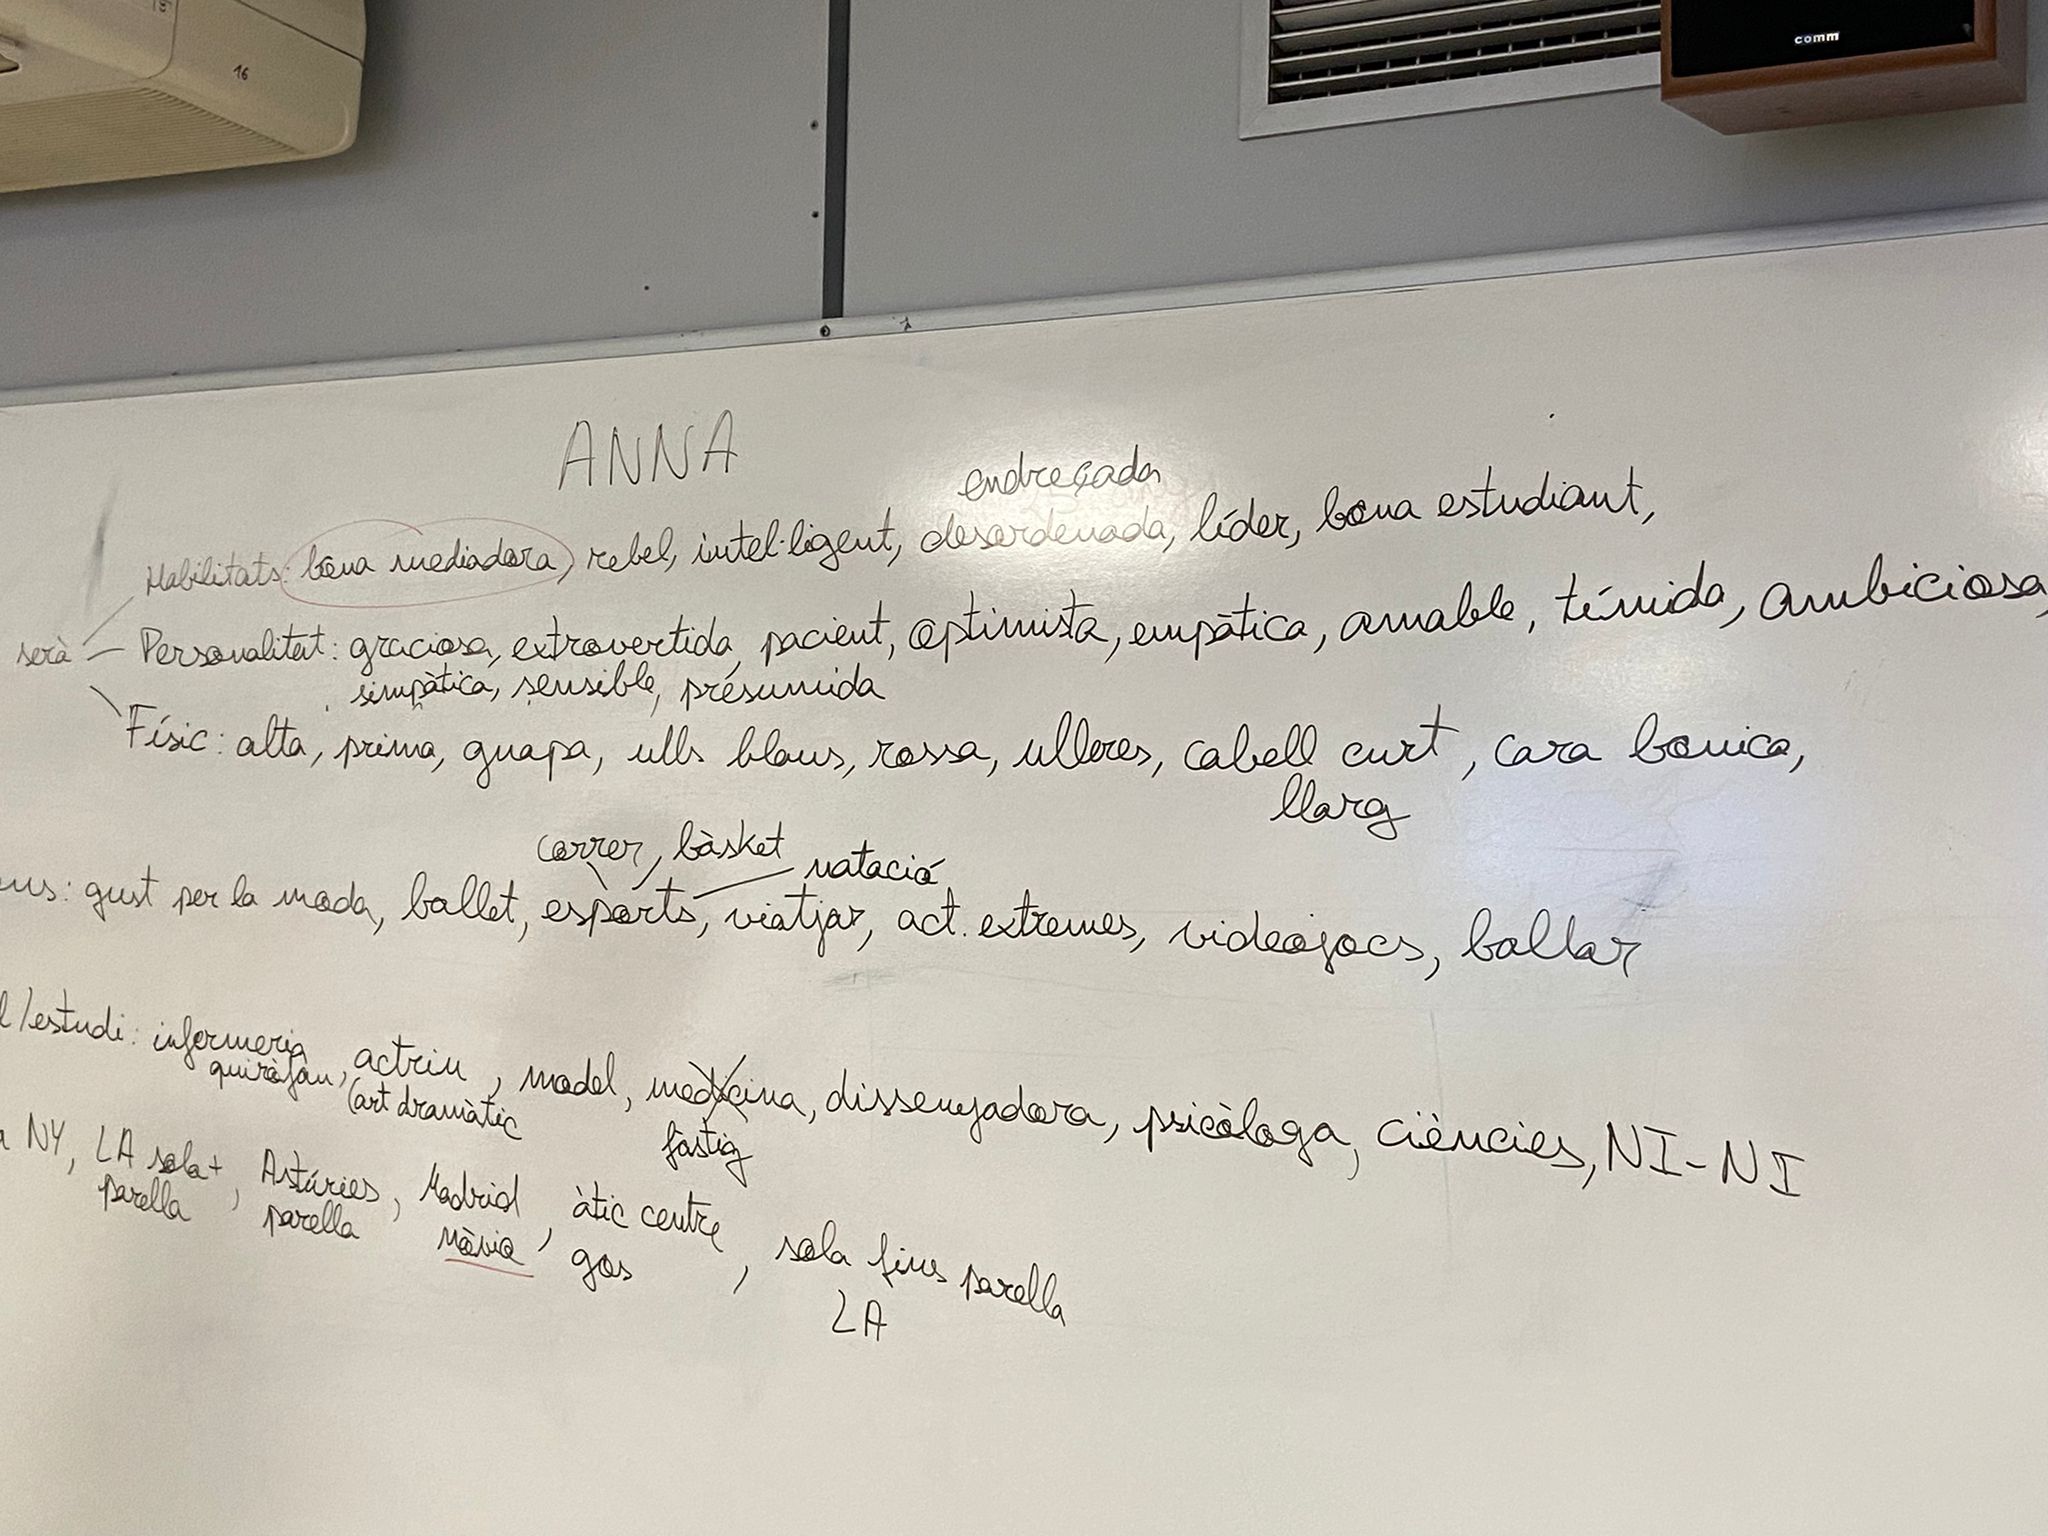 16
comm
ANNA
endreçada
Habilitats: bona mediadora, rebel, intel·ligent, desordenada, líder, bona estudiant,
serà
Personalitat: graciosa, extrovertida, pacient, optimista, empàtica, amable, tímida, ambiciosa,
simpàtica, sensible, présumida
Físic: alta, prima, guapa, ulls blaus, rossa, ulleres, cabell curt, cara bonica,
llarg
correr, bàsket
natació
gust per la moda, ballet, esports, viatjar, act. extremes, videojocs, ballar
/estudi: infermeria, actriu, model, medicina, dissenyadora, psicòloga, ciències, NI-NI
quiròfan, (art dramàtic
fàstig
NY, LA sola+, Astúries, Madrid, àtic centre, sola fins parella
parella parella nòvia gos
LA